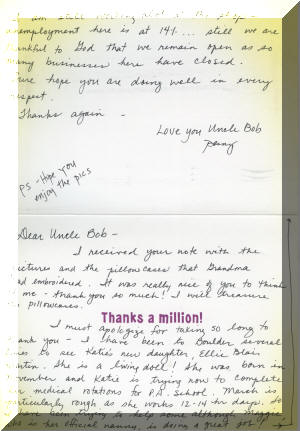 unemployment here is at 14% ... still we are
thankful to God that we remain open as so
many businesses here have closed.
Sure hope you are doing well in every
respect.
Thanks again -
Love you Uncle Bob
PS - Hope you
enjoy the pics
Dear Uncle Bob -
I received your note with the
pictures and the pillowcases that Grandma
had embroidered. It was really nice of you to think
of me - thank you so much! I will treasure
pillowcases.
Thanks a million!
I must apologize for taking so long to
thank you - I have been to Boulder several
times to see Katie's new daughter, Ellie Blair
She is a living doll! She was born in
November and Katie is trying now to complete
her medical rotations for P.A. School. March is
particularly rough as she works 12-14 hr days. So
I have been trying to help some although Maggie,
she is her official nanny, is doing a great job!